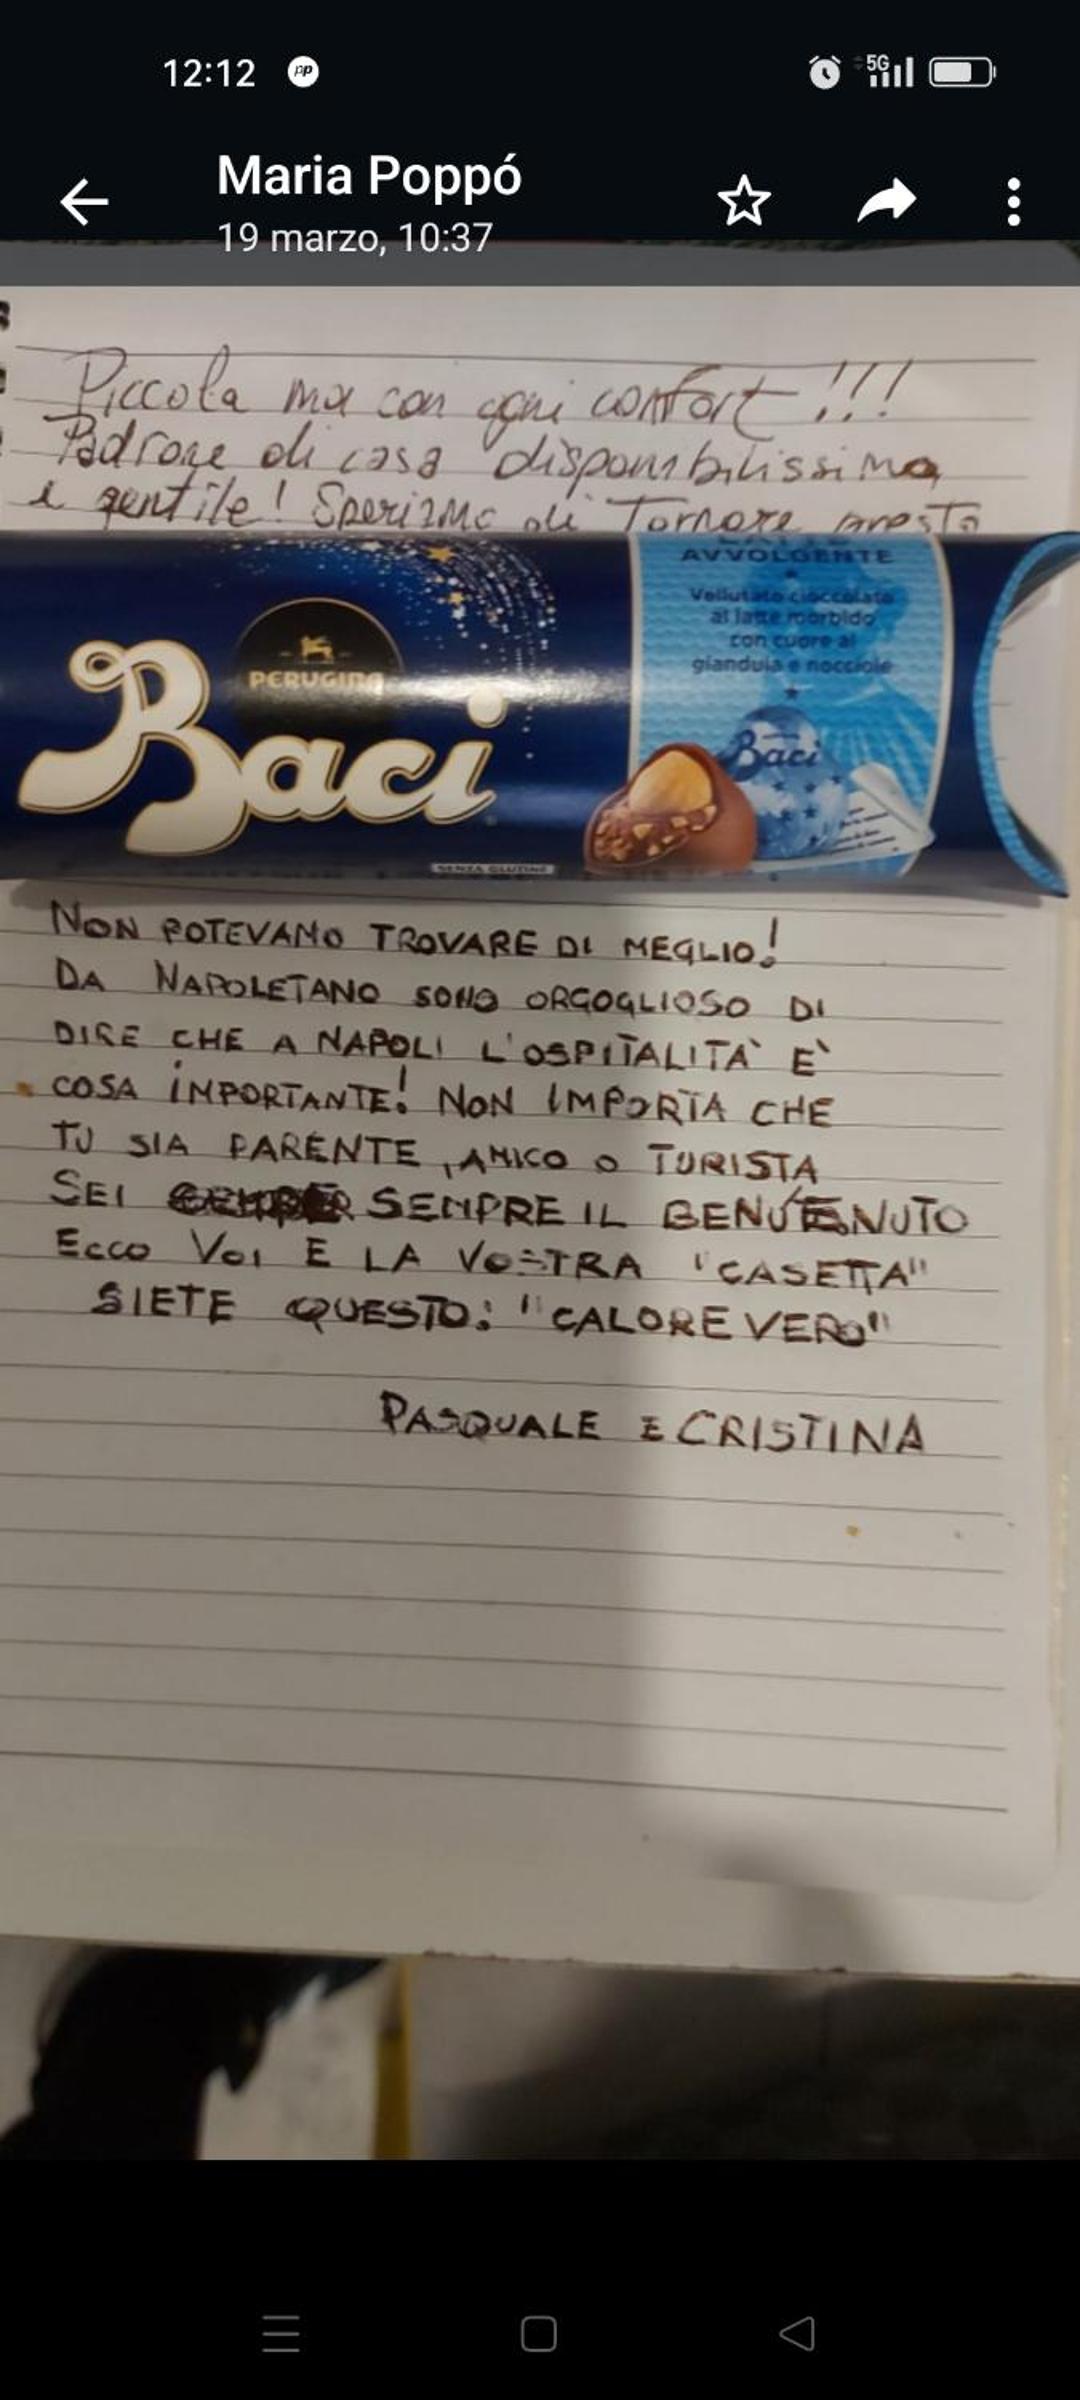 12:12
5G
Maria Poppó
19 marzo, 10:37
Piccola ma con ogni confort!!!
Padrone di casa disponibilissimo
e gentile! Speriamo di Tornare presto
AVVOLGENTE
Vellutato cioccolato
al latte morbido
con cuore al
gianduia e nocciole
PERUGINA
Baci
Baci
SENZA GLUTINE
NON POTEVAMO TROVARE DI MEGLIO!
DA NAPOLETANO SONO ORGOGLIOSO DI
DIRE CHE A NAPOLI L'OSPITALITÀ È
COSA IMPORTANTE! NON IMPORTA CHE
TU SIA PARENTE, AMICO O TURISTA
SEI SEMPRE IL BENVENUTO
ECCO VOI E LA VOSTRA "CASETTA"
SIETE QUESTO: "CALORE VERO"
PASQUALE E CRISTINA